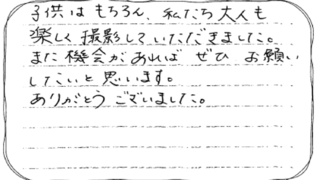 子供はもちろん、私たち大人も
楽しく撮影していただきました。
また機会があればぜひお願い
したいと思います。
ありがとうございました。